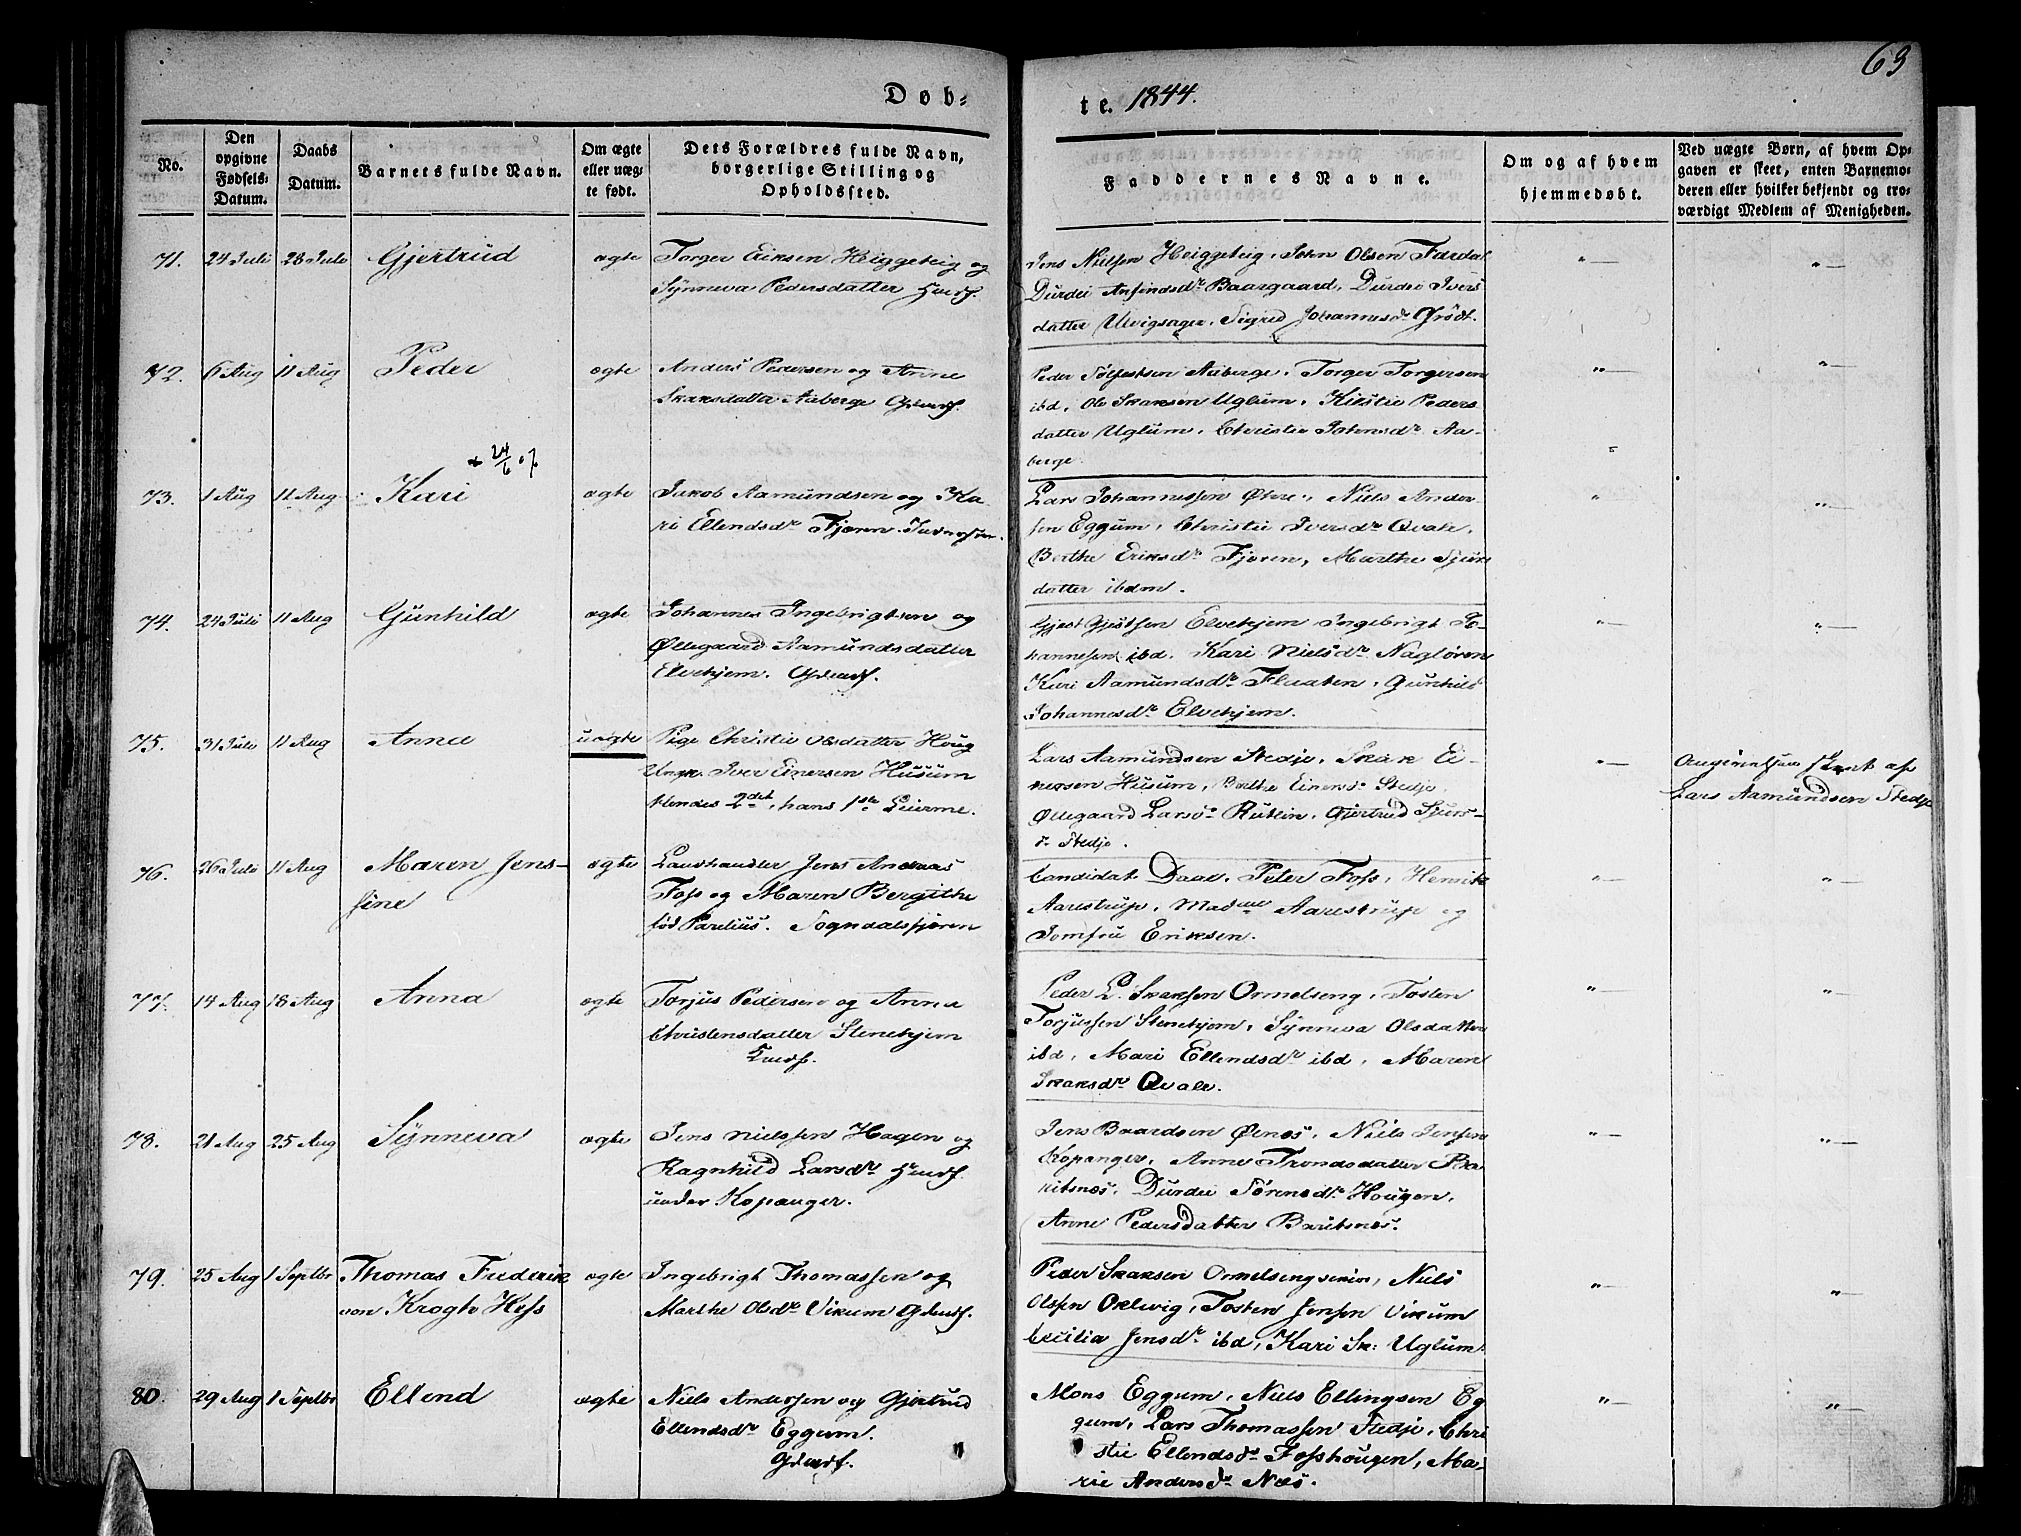 63
Døb-
te. 1844.
No.
Den opgivne Fødsels-Datum.
Daabs Datum.
Barnets fulde Navn.
Om ægte eller uægte født.
Dets Forældres fulde Navn, borgerlige Stilling og Opholdssted.
Faddernes Navne.
Om og af hvem hjemmedøbt.
Ved uægte Børn, af hvem Opgaven er skeet, enten Barnemoderen eller hvilket bekjendt og troværdigt Medlem af Menigheden.
71. 24 Juli 28 Juli Gjertrud ægte Torger Eriksen Heiggeteig og
Synneva Pedersdatter Huusf.
Jens Nielsen Heiggeteig, John Olsen Fardal
Durdei Anfindsdr Baargaard, Durdei Ivers
datter Ulvigsager, Sigrid Johannesdr
72. 6 Aug 11 Aug Peder ægte Anders Pedersen og Anne
Skaksdatter Aaberge Gdmdf.
Peder Tolfestsen Aaberge, Torger Torgersen
ibd, Ole Skaksen Uglum, Kirstie Peders
datter Uglum, Christie Johnsdr Aa-
berge
73. 1 Aug 11 Aug Kari + 24/6 07 ægte Jakob Aamundsen og Ka-
ri Ellendsdr Fjæren
Lars Johannessen Øhre, Niels Ander-
sen Eggum, Christie Iversdr Qvale,
Berthe Eriksdr Fjæren, Marthe
datter ibdm.
74. 24 Juli 11 Aug Gunhild ægte Johannes Ingebrigtsen og
Øllegaard Aamundsdatter
Elvekjem. Gdmdf.
Gjest Gjestsen Elvekjem Ingebrigt Jo-
hannessen ibd. Kari Nielsdr Nagløren
Kari Aamundsdr Flaaten, Gunhild
Johannesdr Elvekjem.
75. 31 Juli 11 Aug Anna uægte Pige Christie Olsdatter Houg
Ungk. Iver Einersen Husum
Hendes 2det, hans 1ste Leierm.
Lars Aamundsen Stedje, Skak Ei-
nersen Husum, Berthe Einersd Stedje,
Øllegaard Larsdr Rutlin, Gjertrud Sjurs-
dr Stedje.
Angivelsen skeet af
Lars Aamundsen Stedje
76. 26 Juli 11 Aug Maren Jens-
sine ægte Landhandler Jens Andreas
Foss og Maren Bergithe
fød Parelius. Sogndalsfjæren
Candidat Daae, Peter Foss, Henrik
Aarestrup, Madme Aarestrup og
Jomfru Eriksen.
77. 14 Aug 18 Aug Anna ægte Torjus Pedersen og Anna
Christensdatter Stenekjem
Huusf.
Peder L. Skaksen Ormelseng, Tosten
Torjussen Stenekjem, Synneva Olsdatter
ibd, Mari Ellendsdr ibd, Maren
Skaksdr Qvale.
78. 21 Aug 25 Aug Synneva ægte Jens Nielssen Hagen og
Ragnhild Larsdr Huusf.
under Kopanger.
Jens Baardsen Øenes, Niels Jensen
Kopanger, Anne Trondsdatter Ba-
ritsnæs, Durdei Sørensdr Hougen,
Anne Pedersdatter Baritsnæs.
79. 25 Aug 1 Septbr Thomas Frederik
von Krogh Hess ægte Ingebrigt Thomassen og
Marthe Olsdr Vikum Gdmdf.
Peder Skaksen Ormelseng, Niels
Olsen Oklevig, Tosten Jensen Vikum
Cecilia Jensdr ibd, Kari Sk: Uglum.
80. 29 Aug 1 Septbr Ellend ægte Niels Anderssen og Gjertrud
Ellendsdr Eggum.
Gdmdf.
Mons Eggum, Niels Ellingsen Eg
gum, Lars Thomassen Stedje, Chri
stie Ellendsdr Fosshougen, Ma-
rie Andersdr Næs.